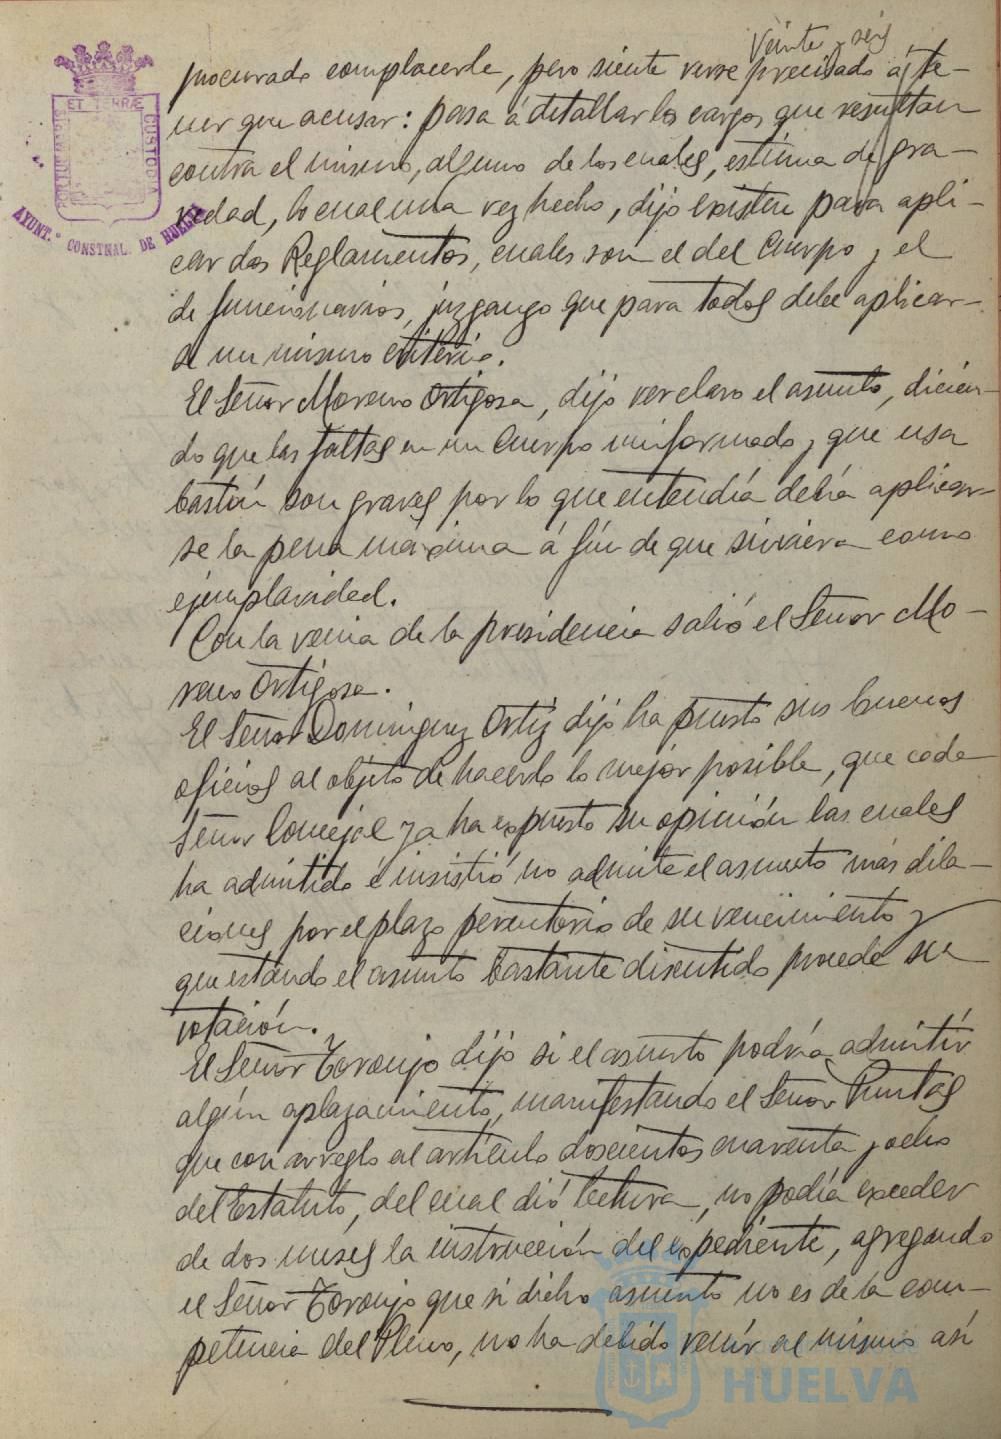 Veinte y seis
procurado complacerle, pero siente verse precisado á te-
ner que acusar: pasa á detallar los cargos que resultan
contra el mismo, alguno de los cuales, estima de gra-
vedad, lo cual una vez hecho, dijo existen para apli-
car dos Reglamentos, cuales son el del Cuerpo y el
de funcionarios, juzgango que para todos debe aplicar-
se un mismo criterio.
El Señor Moreno Ortigosa, dijo ver claro el asunto, dicien-
do que las faltas en un Cuerpo uniformado y que usa
bastón son graves por lo que entendía debía aplicar-
se la pena máxima á fin de que sirviera como
ejemplaridad.
Con la venia de la presidencia salió el Señor Mo-
reno Ortigosa.
El Señor Dominguez Ortiz dijo ha puesto sus buenos
oficios al objeto de hacerlo lo mejor posible, que cada
Señor Concejal ya ha expuesto su opinión las cuales
ha admitido é insistió no admite el asunto más dila-
ciones por el plazo perentorio de su vencimiento y
que estando el asunto bastante discutido procede su
votación.
El Señor Toronjo dijo si el asunto podría admitir
algún aplazamiento, manifestando el Señor Puntas
que con arreglo al artículo doscientos cuarenta y ocho
del Estatuto, del cual dió lectura, no podía exceder
de dos meses la instrucción del expediente, agregando
el Señor Toronjo que si dicho asunto no es de la com-
petencia del Pleno, no ha debido venir al mismo así
ET TERRÆ
CUSTODIA
AYUNT.º CONSTNAL. DE HUELVA
HUELVA